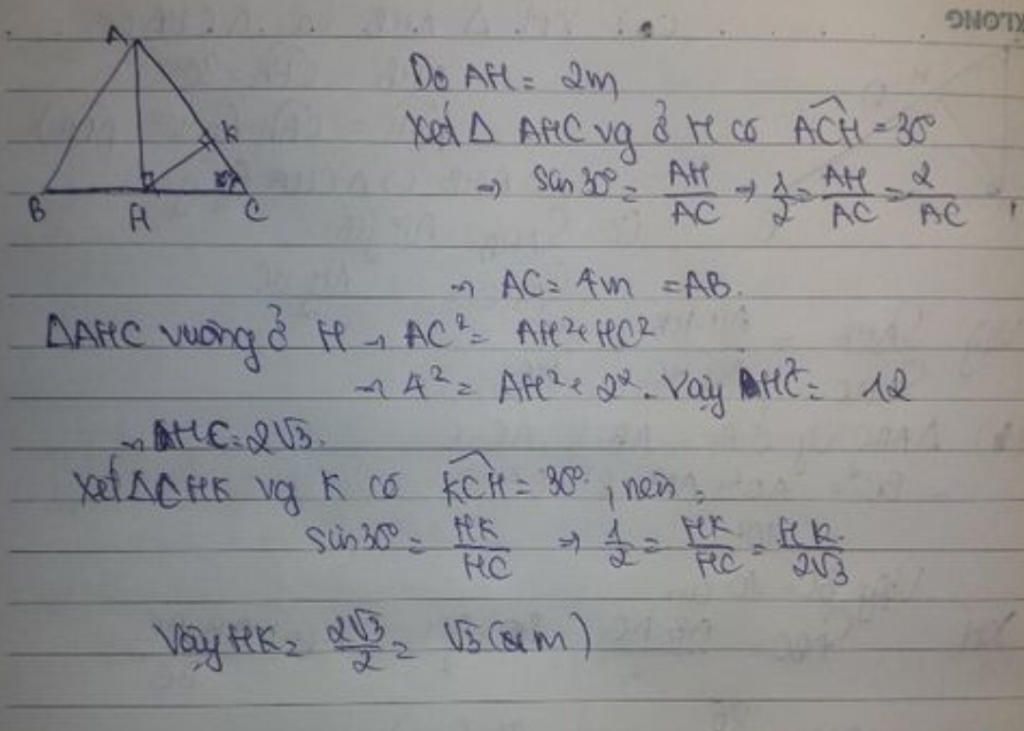 KLONG
A
K
B
H
C
Do AH = 2m
Xét Δ AHC vg ở H có ACH = 30°
→ sin 30° = AH/AC → 1/2 = AH/AC = 2/AC
→ AC = 4m = AB.
ΔAHC vuông ở H → AC² = AH² + HC²
→ 4² = AH² + 2². Vậy HC² = 12
→ HC = 2√3.
Xét ΔCHK vg K có KCH = 30°, nên:
sin 30° = HK/HC → 1/2 = HK/HC = HK/2√3
Vậy HK = 2√3/2 = √3 (m)